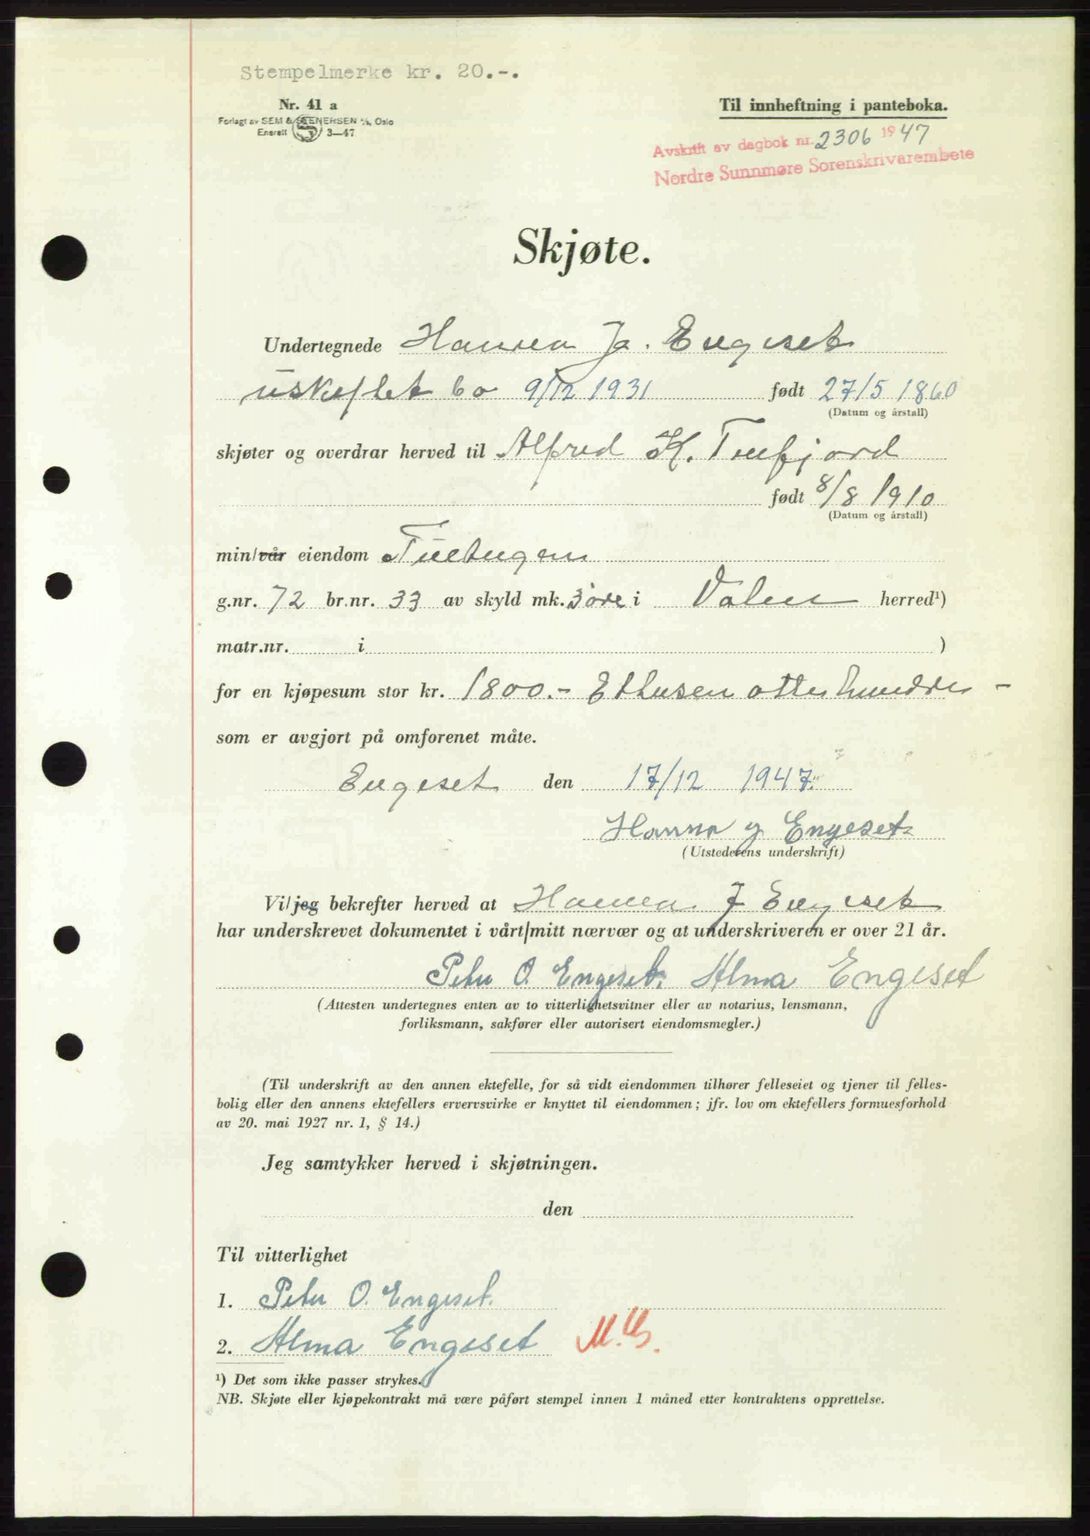 Stempelmerke kr. 20.-.
Nr. 41 a
Forlagt av SEM & STENERSEN A/S, Oslo
Enerett 3—47
Til innheftning i panteboka.
Avskrift av dagbok nr. 2306 1947
Nordre Sunnmøre Sorenskrivarembete
Skjøte.
Undertegnede Hanna J. Engeset
uskiftet bo 9/12 1931 født 27/5 1860
(Datum og årstall)
skjøter og overdrar herved til Alfred K. Tuefjord
født 8/8 1910
(Datum og årstall)
min/vår eiendom
g.nr. 72 br.nr. 33 av skyld mk. 3 øre i herred¹)
matr.nr. i )
for en kjøpesum stor kr. 1800.- Ettusen ottehundre -
som er avgjort på omforenet måte.
Engeset den 17/12 1947.
Hanna J. Engeset
(Utstederens underskrift)
Vi/jeg bekrefter herved at Hanna J Engeset
har underskrevet dokumentet i vårt/mitt nærvær og at underskriveren er over 21 år.
Peter O. Engeset. Alma Engeset
(Attesten undertegnes enten av to vitterlighetsvitner eller av notarius, lensmann,
forliksmann, sakfører eller autorisert eiendomsmegler.)
(Til underskrift av den annen ektefelle, for så vidt eiendommen tilhører felleseiet og tjener til felles-
bolig eller den annens ektefellers ervervsvirke er knyttet til eiendommen; jfr. lov om ektefellers formuesforhold
av 20. mai 1927 nr. 1, § 14.)
Jeg samtykker herved i skjøtningen.
den
Til vitterlighet
1. Peter O. Engeset.
2. Alma Engeset
¹) Det som ikke passer strykes.
NB. Skjøte eller kjøpekontrakt må være påført stempel innen 1 måned etter kontraktens opprettelse.